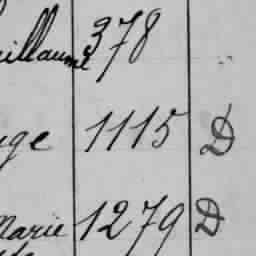 uillaume 378
uge 1115 D
Marie 1279 D